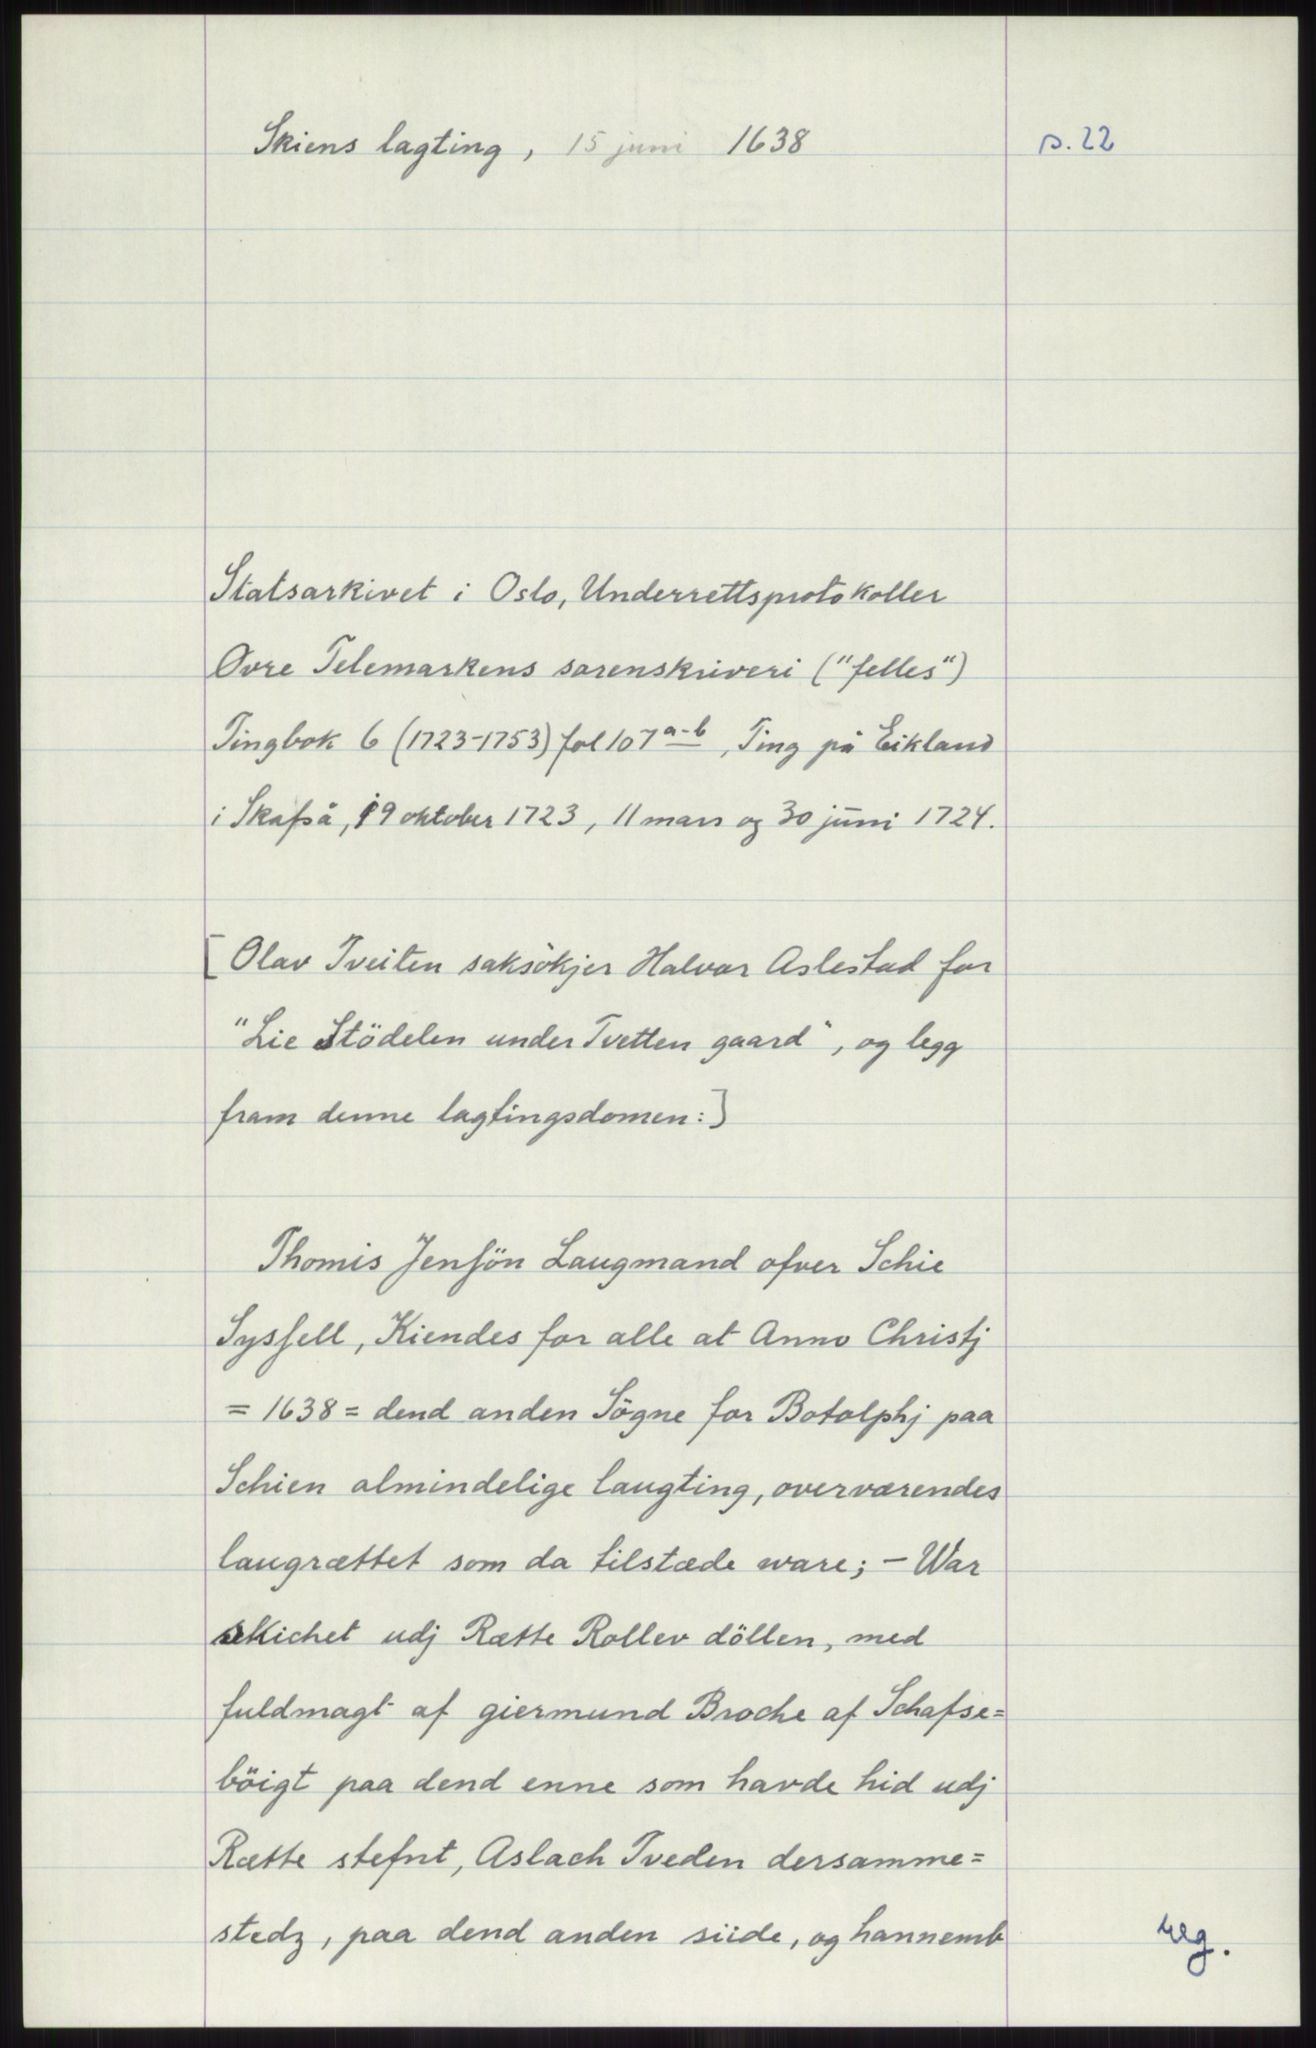 Skiens lagting, 15 juni 1638
s. 22
Statsarkivet i Oslo, Underrettsprotokoller
Øvre Telemarkens sorenskriveri ("felles")
Tingbok 6 (1723-1753) fol 107 a-b, Ting på Eikland
i Skafså, 19 oktober 1723, 11 mars og 30 juni 1724.
[Olav Tveiten saksökjer Halvor Aslestad for
"Lie Stödelen under Tvetten gaard", og legg
fram denne lagtingsdomen:]
Thomis Jensön Laugmand ofver Schie
Syssell, Kiendes for alle at Anno Christj
= 1638 = dend anden Sögne for Botolphj paa
Schien almindelige laugting, overværendes
laugrættet som da tilstæde ware; - War
skichet udj Rætte Rollev döllen, med
fuldmagt af giermund Broche af Schafse=
böigt paa dend enne som havde hid udj
Rætte stefnt, Aslach Tveden dersamme=
stedz, paa dend anden siide, og hannemb
reg.